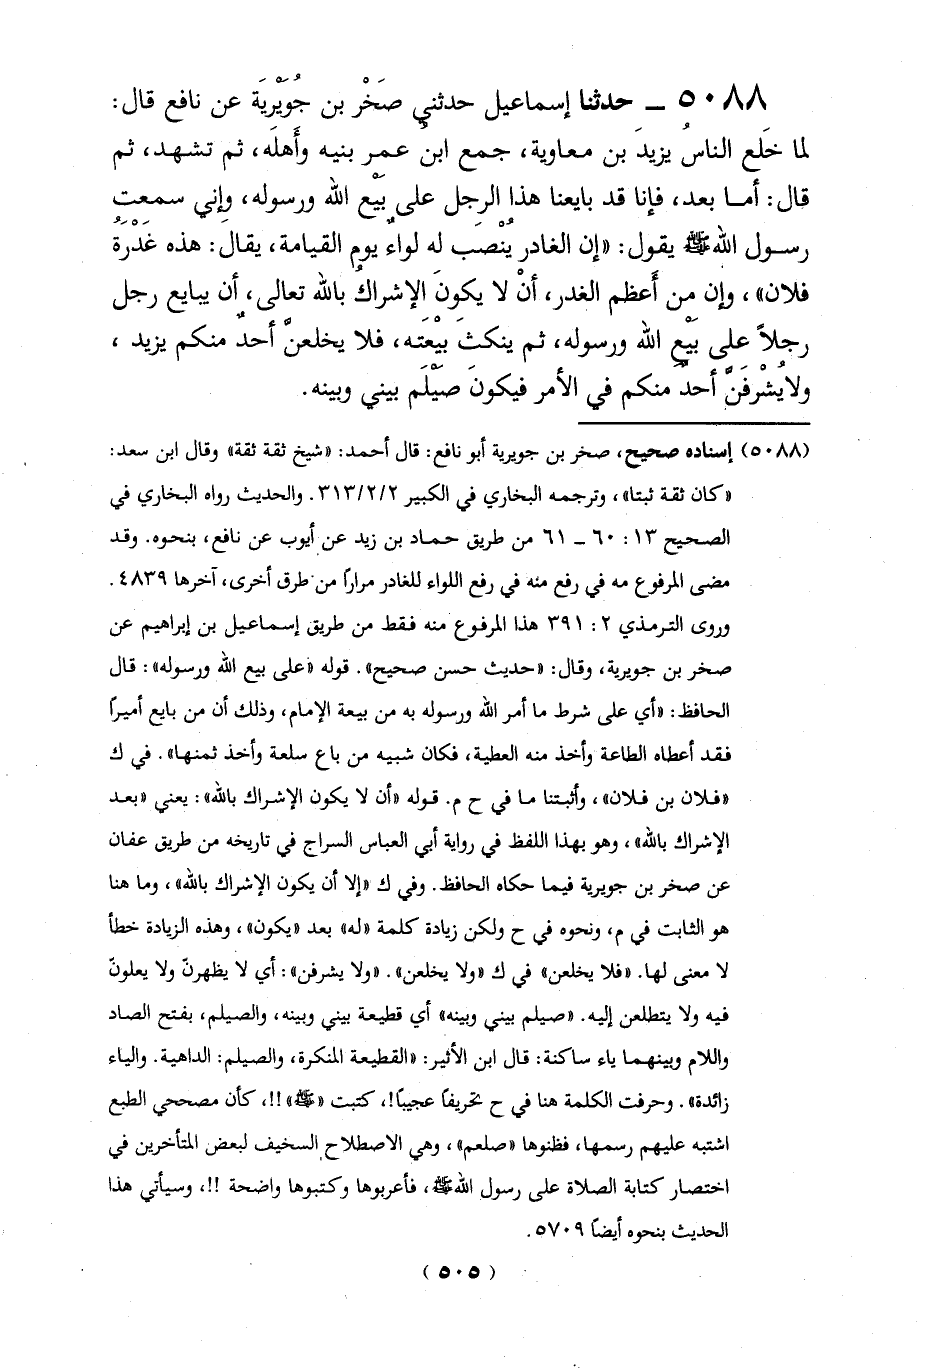 ٥٠٨٨ ـ حدثنا إسماعيل حدثني صَخْر بن جُوَيْرِيَة عن نافع قال:
لما خَلَع الناسُ يزيدَ بن معاوية، جمع ابن عمر بنيه وأَهلَه، ثم تشهد، ثم
قال: أما بعد، فإنا قد بايعنا هذا الرجل على بَيْع الله ورسوله، وإني سمعت
رسول الله ﷺ يقول: «إن الغادر يُنْصَب له لواءٌ يوم القيامة، يقال: هذه غَدْرَةُ
فلان»، وإن من أَعظم الغدر، أنْ لا يكونَ الإشراكُ بالله تعالى، أن يبايع رجل
رجلاً على بَيْعِ الله ورسوله، ثم ينكثَ بيْعَته، فلا يخلعنَّ أحدٌ منكم يزيد،
ولا يُشْرِفَنَّ أحدٌ منكم في الأمر فيكونَ صَيْلَم بيني وبينه.
(٥٠٨٨) إسناده صحيح، صخر بن جويرية أبو نافع: قال أحمد: «شيخ ثقة ثقة» وقال ابن سعد:
«كان ثقة ثبتا»، وترجمه البخاري في الكبير ٣١٣/٢/٢. والحديث رواه البخاري في
الصحيح ١٣: ٦٠ ـ ٦١ من طريق حماد بن زيد عن أيوب عن نافع، بنحوه. وقد
مضى المرفوع مه في رفع منه في رفع اللواء للغادر مراراً من طرق أخرى، آخرها ٤٨٣٩.
وروى الترمذي ٢: ٣٩١ هذا المرفوع منه فقط من طريق إسماعيل بن إبراهيم عن
صخر بن جويرية، وقال: «حديث حسن صحيح». قوله «على بيع الله ورسوله»: قال
الحافظ: «أي على شرط ما أمر الله ورسوله به من بيعة الإمام، وذلك أن من بايع أميراً
فقد أعطاه الطاعة وأخذ منه العطية، فكان شبيه من باع سلعة وأخذ ثمنها». في ك
«فلان بن فلان»، وأثبتنا ما في ح م. قوله «أن لا يكون الإشراك بالله»: يعني «بعد
الإشراك بالله»، وهو بهذا اللفظ في رواية أبي العباس السراج في تاريخه من طريق عفان
عن صخر بن جويرية فيما حكاه الحافظ. وفي ك «إلا أن يكون الإشراك بالله»، وما هنا
هو الثابت في م، ونحوه في ح ولكن زيادة كلمة «له» بعد «يكون»، وهذه الزيادة خطأ
لا معنى لها. «فلا يخلعن» في ك «ولا يخلعن». «ولا يشرفن»: أي لا يظهرنّ ولا يعلونّ
فيه ولا يتطلعن إليه. «صيلم بيني وبينه» أي قطيعة بيني وبينه، والصيلم، بفتح الصاد
واللام وبينهما ياء ساكنة: قال ابن الأثير: «القطيعة المنكرة، والصيلم: الداهية. والياء
زائدة». وحرفت الكلمة هنا في ح تحريفاً عجيباً!، كتبت «ﷺ»!!، كأن مصححي الطبع
اشتبه عليهم رسمها، فظنوها «صلعم»، وهي الاصطلاح السخيف لبعض المتأخرين في
اختصار كتابة الصلاة على رسول الله ﷺ، فأعربوها وكتبوها واضحة !!، وسيأتي هذا
الحديث بنحوه أيضاً ٥٧٠٩.
(٥٠٥)